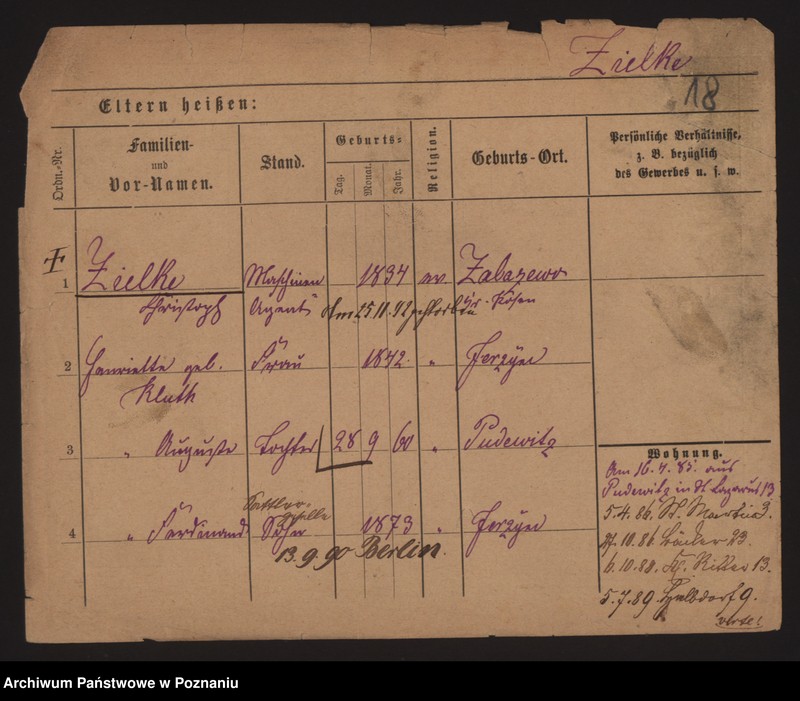 Zielke
18
Eltern heißen:
Ordn.-Nr.
Familien-
und
Vor-Namen.
Stand.
Geburts-
Tag.
Monat.
Jahr.
Religion.
Geburts-Ort.
Persönliche Verhältnisse,
z. B. bezüglich
des Gewerbes u. s. w.
1 Zielke Maschinen 1834 ev. Zalazewo
Christoph Agent Am 25 11. 92 gestorben
2 Henriette geb. Frau 1842. " Jerzyce
Kluth
3 " Auguste Tochter 28 9 60 " Pudewitz
Sattler
geselle
4 " Ferdinand Sohn 1873 " Jerzyce
13.9.90 Berlin.
Wohnung.
Am 16.4.85. aus
Pudewitz in St. Lazarus 13
5.4.86. St. Martin 3.
10.86. 23.
6.10.88. Ritter 13.
5.7.89 Halbdorf 9.
verte!
Archiwum Państwowe w Poznaniu